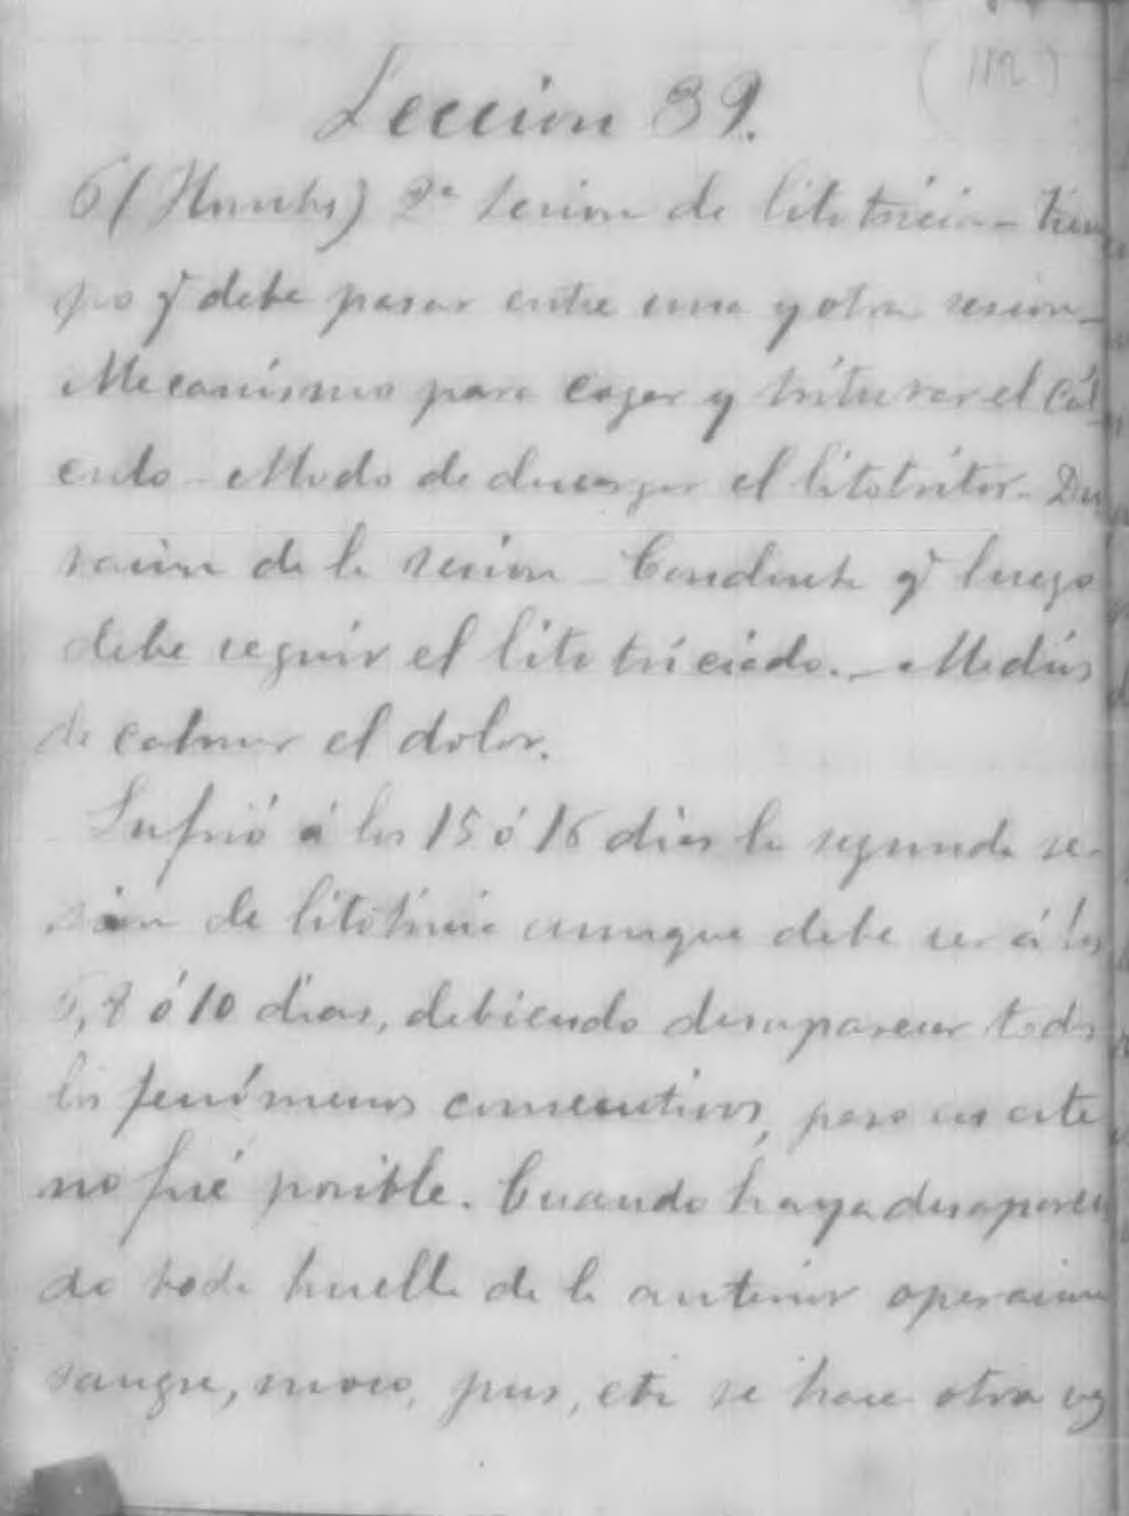 (112)
Leccion 39.
6 ( ) 2ª sesion de litotricia - Tiem
po q̃ debe pasar entre una y otra sesion -
Mecanismo para coger y triturar el cál-
culo - Modo de descargar el litotritor - Du
racion de la sesion - Conducta q̃ luego
debe seguir el litotriciado. - Medios
de calmar el dolor.
Sufrió á los 15 ó 16 dias la segunda se-
sion de litotricia aunque debe ser á los
6, 8 ó 10 dias, debiendo desaparecer todos
los fenómenos consecutivos, pero en este
no fué posible. Cuando haya desapareci
do toda huella de la anterior operacion
sangre, moco, pus, etc se hace otra vez